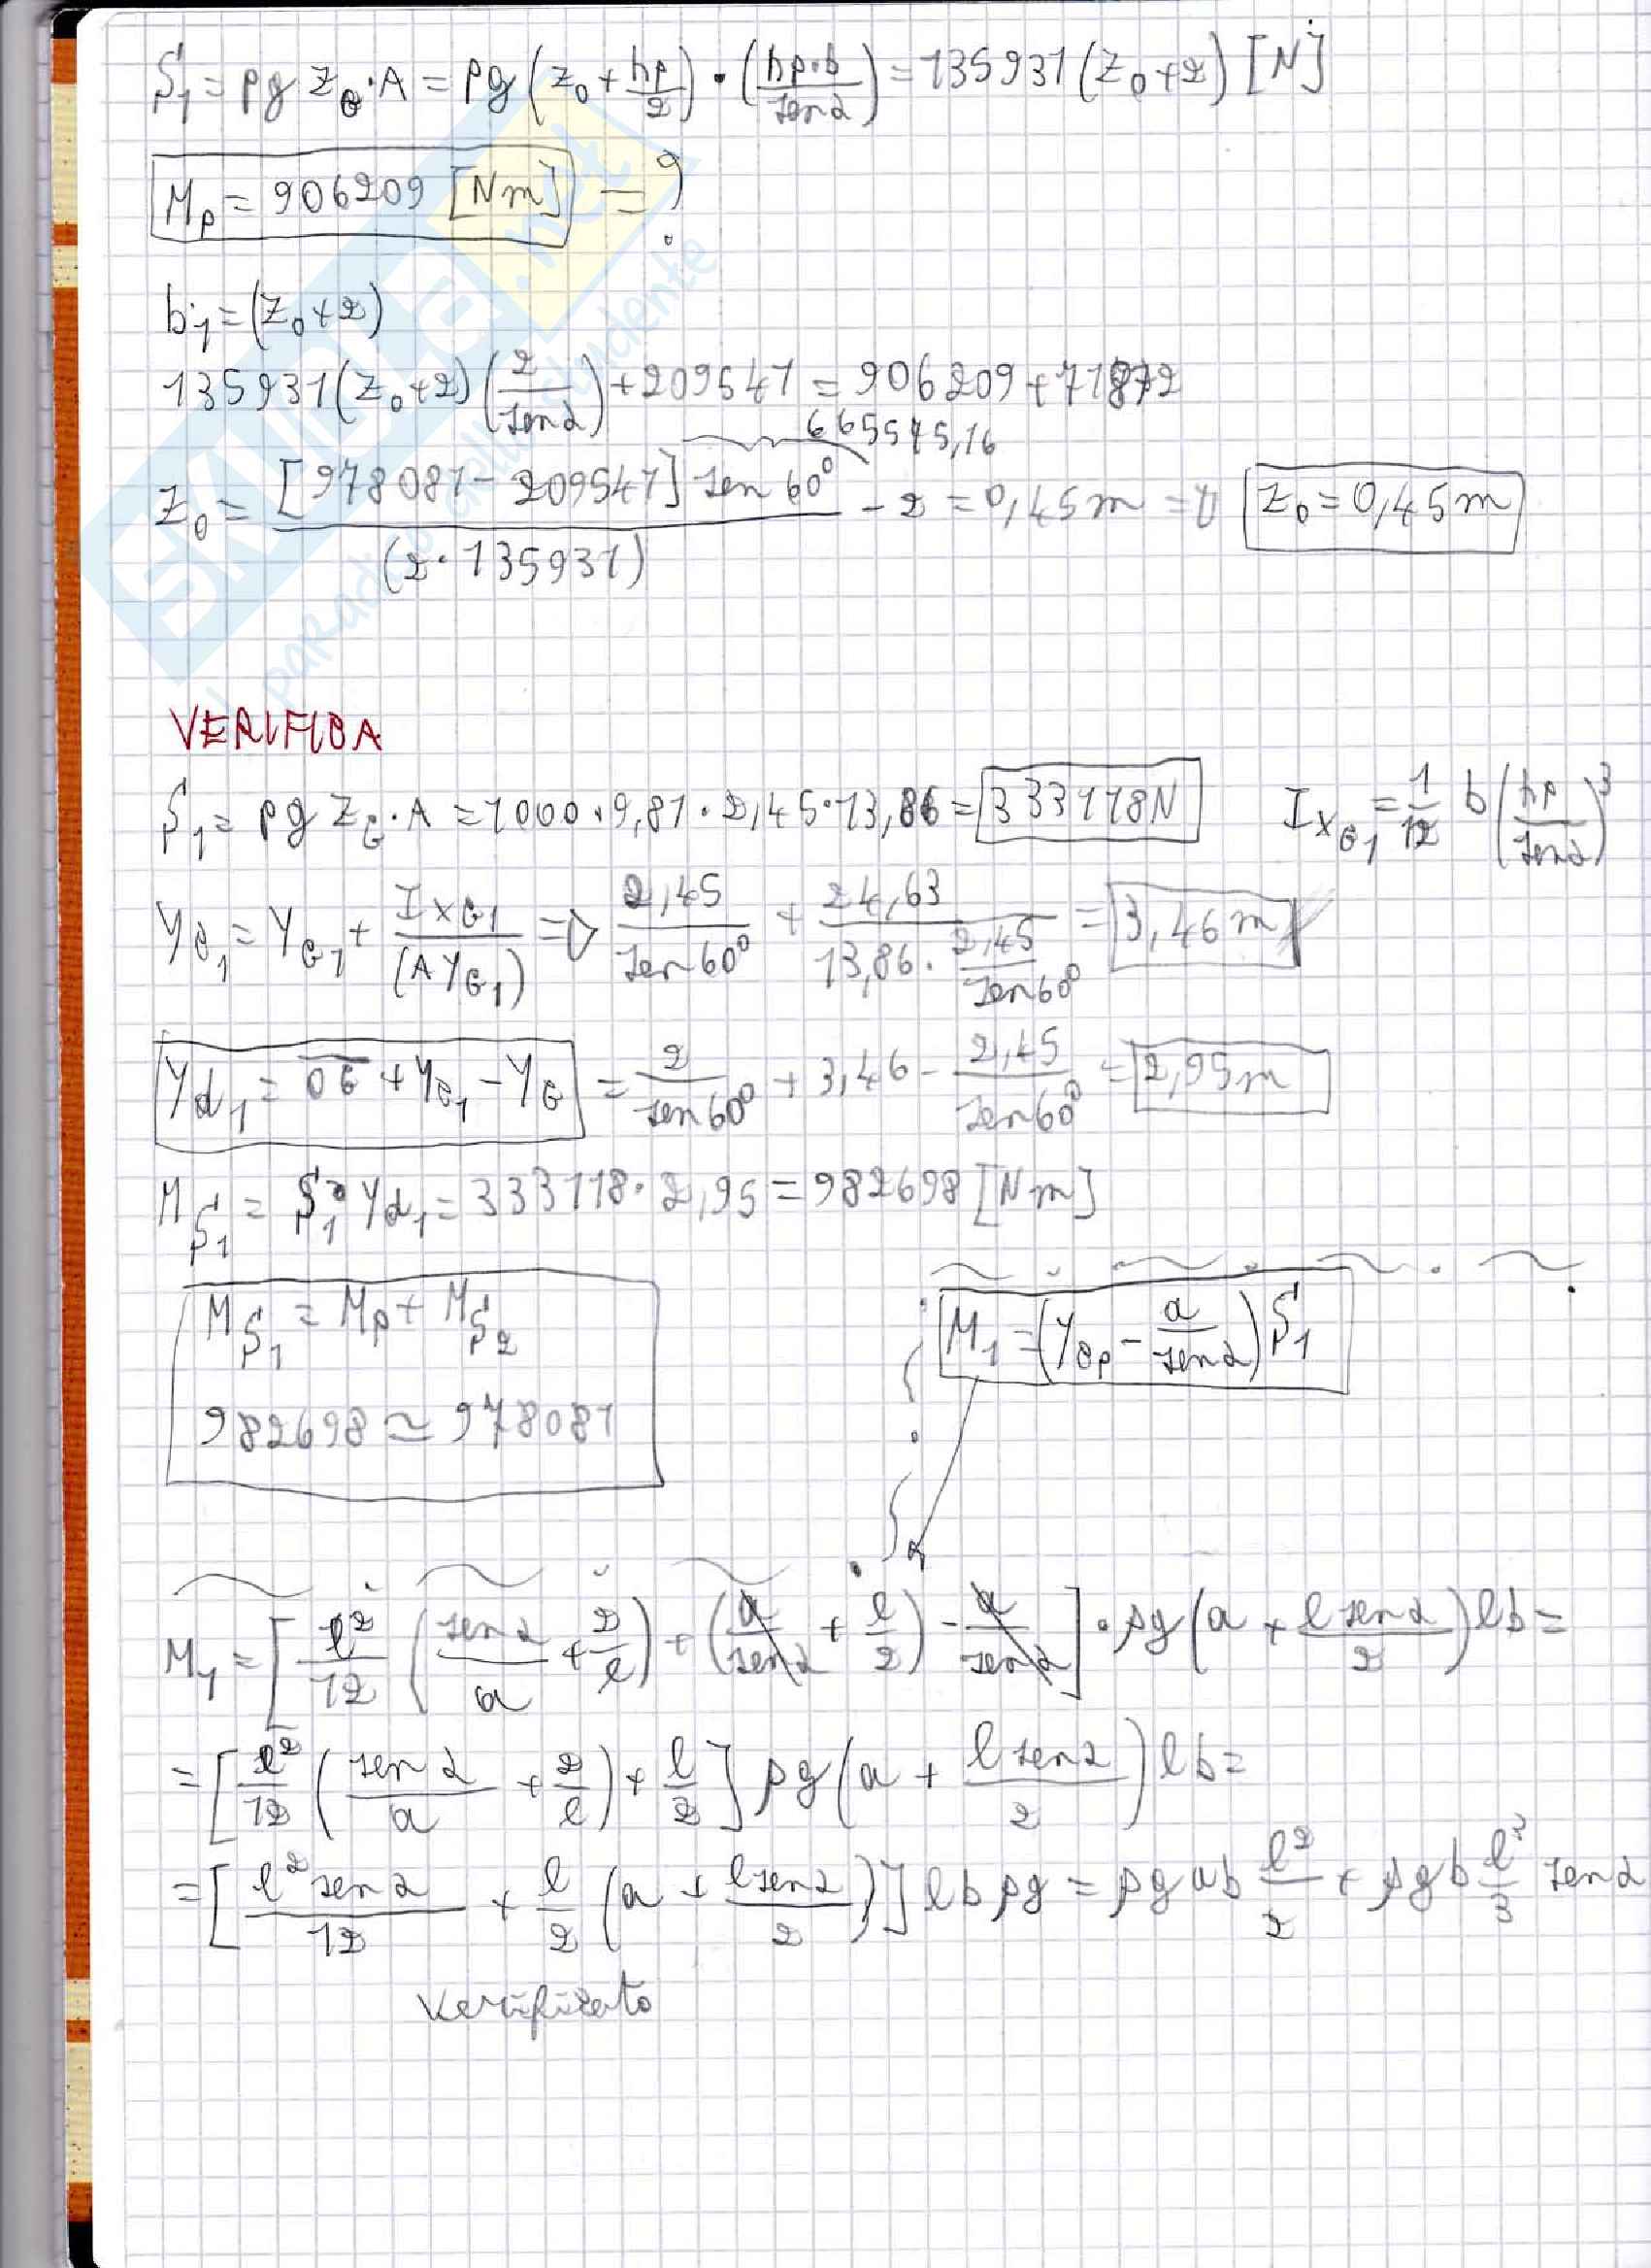 S₁ = ρg z_G · A = ρg (z₀ + hp/2) · (hp·b/senα) = 135931 (z₀+2) [N]
Mp = 906209 [Nm] = ?
b₁ = (z₀+2)
135931 (z₀+2) (2/senα) + 209547 = 906209 + 71872
665575,16
z₀ = [978081 - 209547] sen 60° / (2·135931) - 2 = 0,45m ⇒ z₀ = 0,45m
SKUOLA.net
VERIFICA
S₁ = ρg z_G · A = 1000 · 9,81 · 2,45 · 13,86 = 333118N   I_xG₁ = 1/12 b (hp/senα)³
Y_C₁ = Y_G₁ + I_xG₁/(A Y_G₁) ⇒ 2,45/sen60° + 24,63/(13,86 · 2,45/sen60°) = 3,46m
Yd₁ = OG + Y_C₁ - Y_G = 2/sen60° + 3,46 - 2,45/sen60° = 2,95m
M_S₁ = S₁ Yd₁ = 333118 · 2,95 = 982698 [Nm]
M_S₁ = Mp + M_S₂
982698 ≃ 978081
M₁ = (Y_Cp - a/senα) S₁
M₁ = [l²/12 (senα/a + 2/l) + (a/senα + l/2) - a/senα] · ρg (a + l senα/2) lb =
= [l²/12 (senα/a + 2/l) + l/2] ρg (a + l senα/2) lb =
= [l² senα/12 + l/2 (a + l senα/2)] lb ρg = ρg ab l²/2 + ρgb l³/3 senα
Verificato